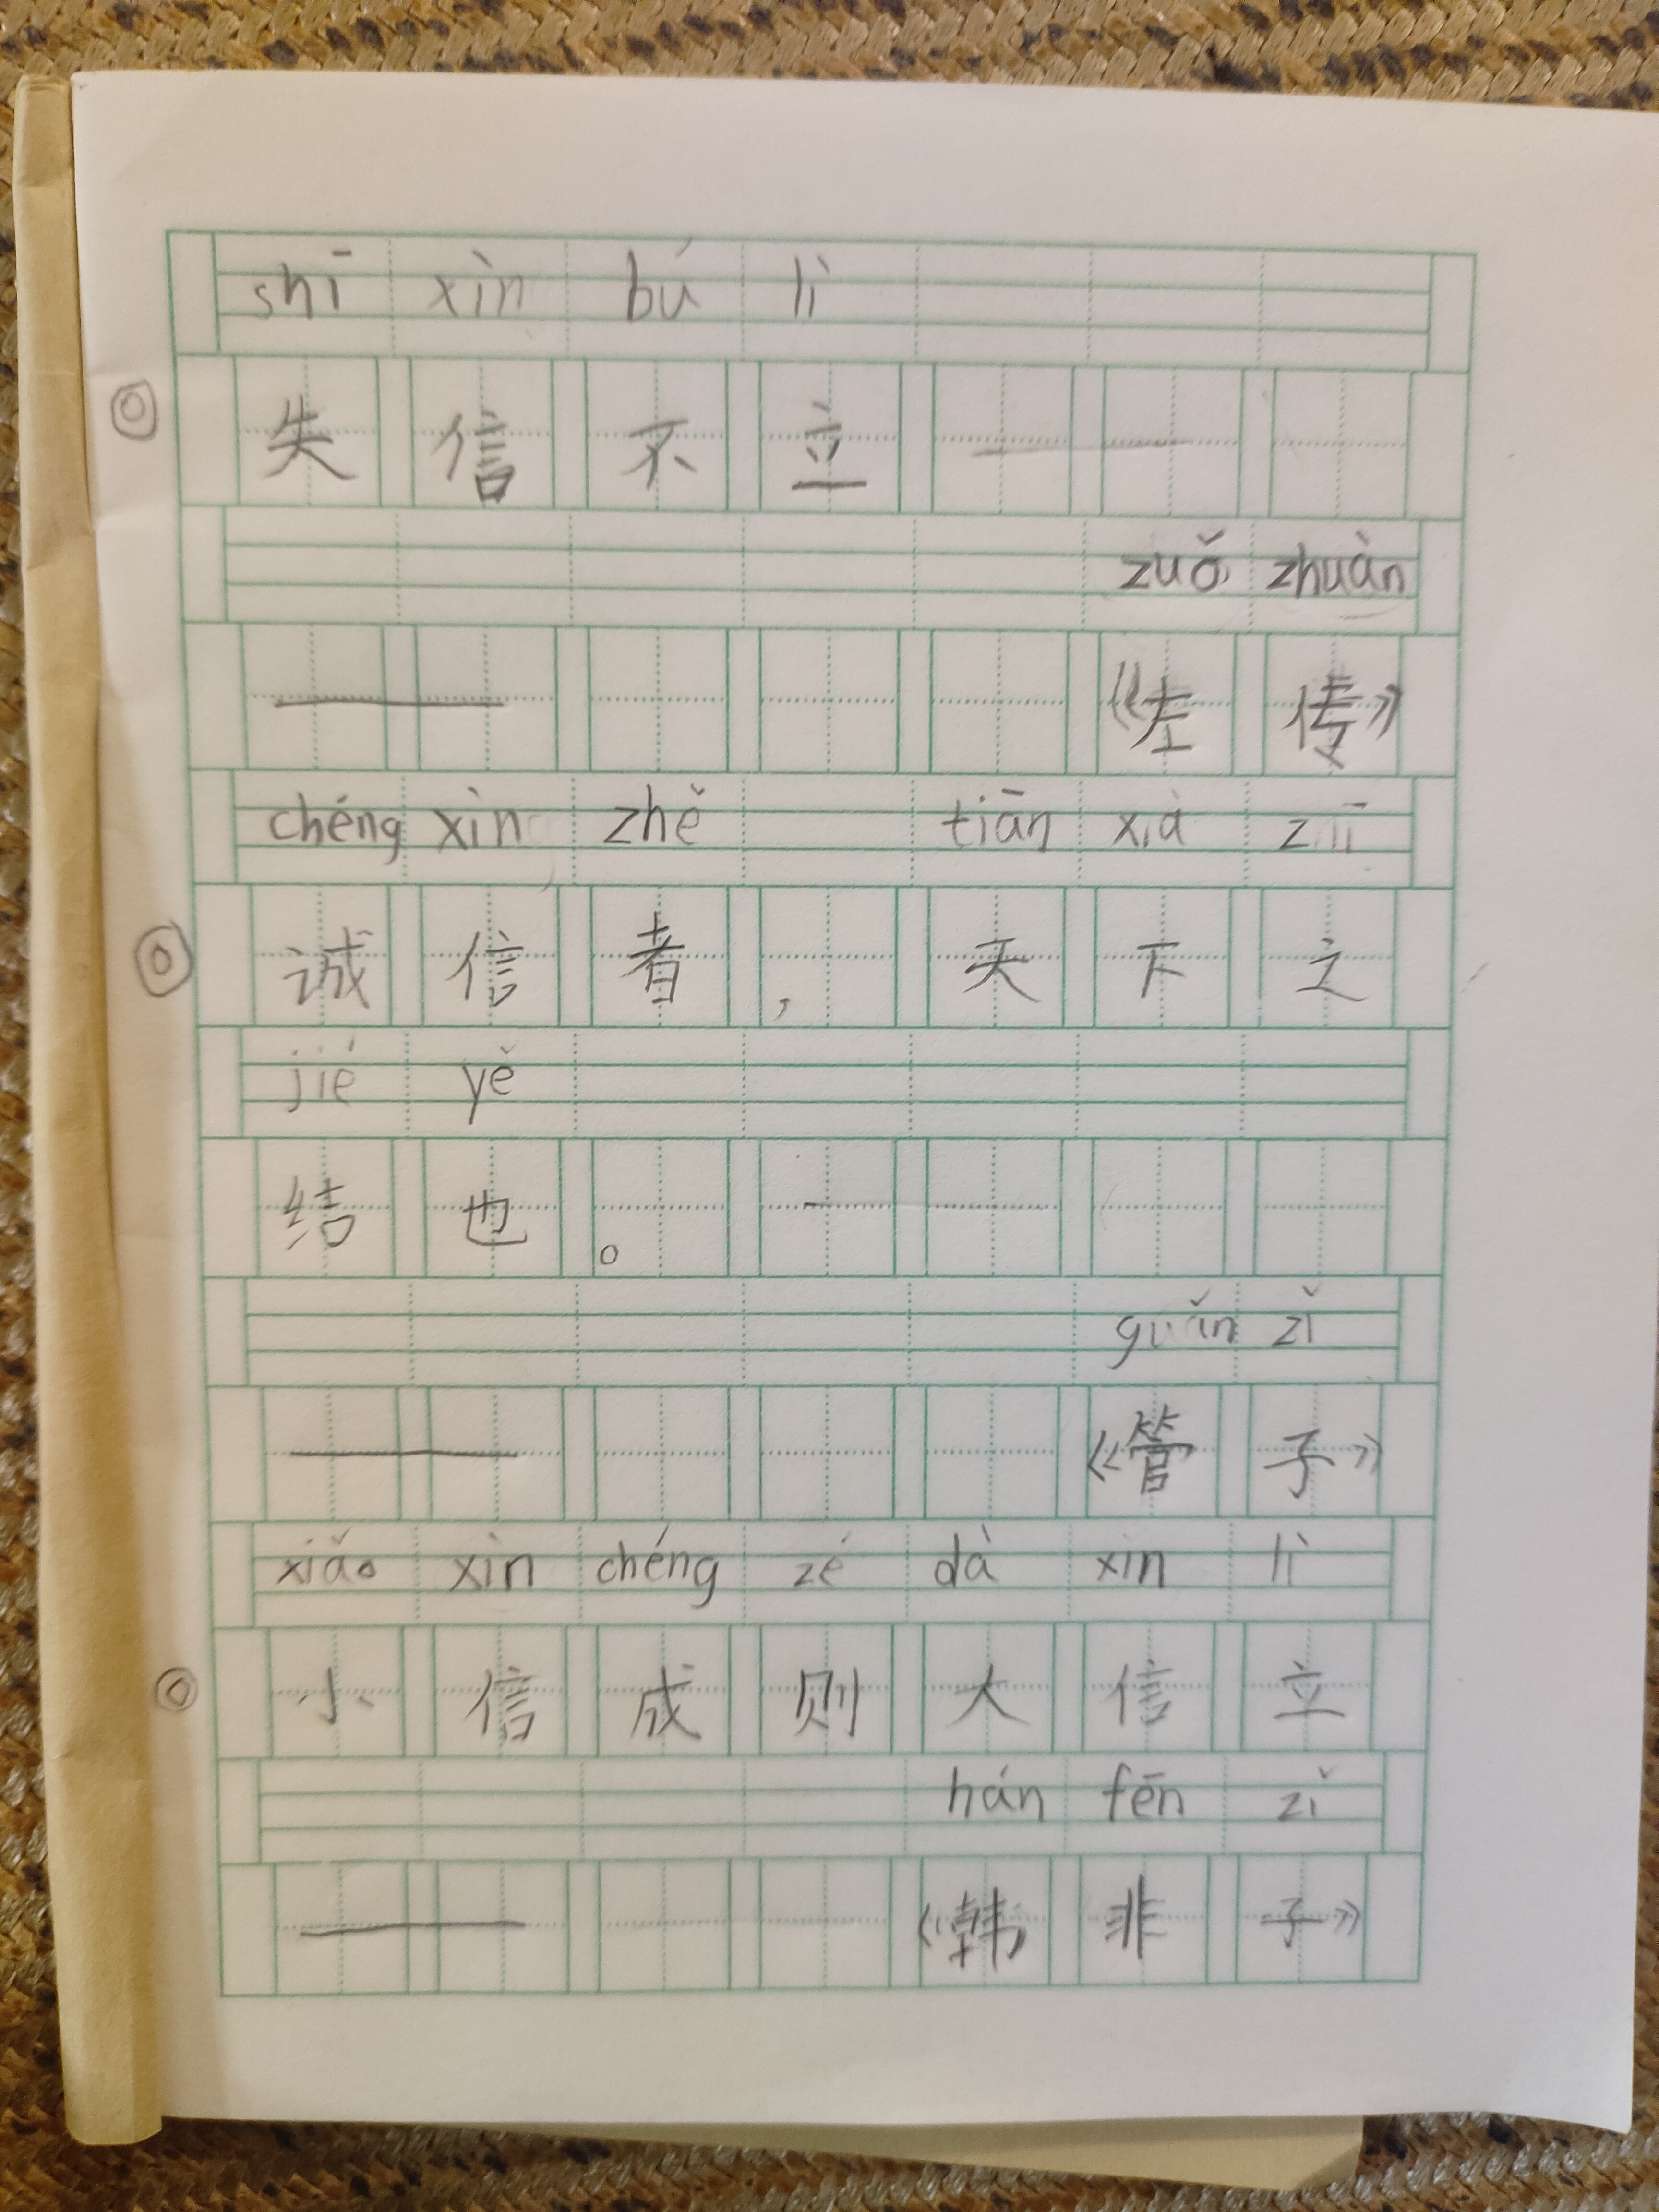 shī xìn bú lì
失信不立——
zuǒ zhuàn
——《左传》
chéng xìn zhě tiān xià zhī
诚信者，天下之
jié yě
结也。——
guǎn zǐ
——《管子》
xiǎo xìn chéng zé dà xìn lì
小信成则大信立
hán fēn zǐ
——《韩非子》